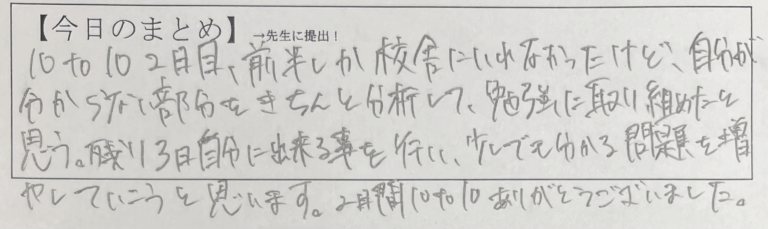 【今日のまとめ】→先生に提出！
10 to 10 2日目、前半しか校舎にいれなかったけど、自分が
分からない部分をきちんと分析して、勉強に取り組めたと
思う。残り3日自分に出来る事を行い、少しでも分かる問題を増
やしていこうと思います。2日間10 to 10ありがとうございました。